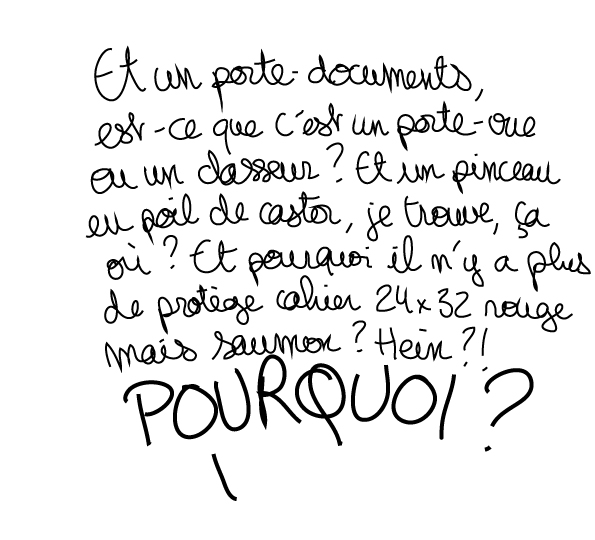 Et un porte-documents,
est-ce que c'est un porte-vue
ou un classeur ? Et un pinceau
en poil de castor, je trouve, ça
où ? Et pourquoi il n'y a plus
de protège cahier 24x32 rouge
mais saumon ? Hein ?!
POURQUOI ?